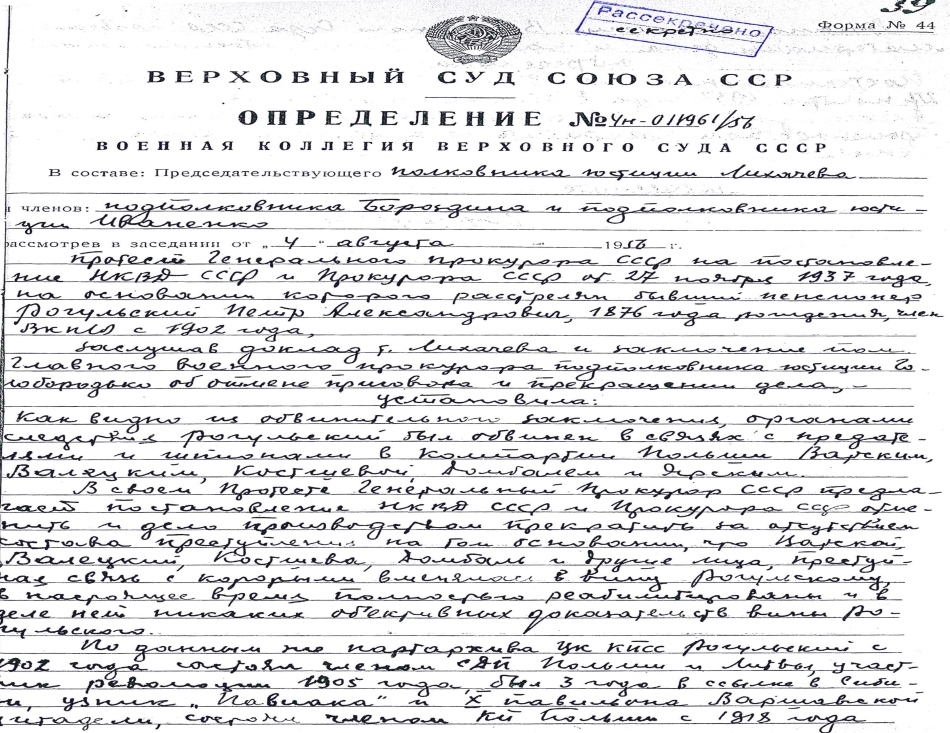 39
Рассекречено
секретно
Форма № 44
ВЕРХОВНЫЙ СУД СОЮЗА ССР
ОПРЕДЕЛЕНИЕ №4н-011961/56
ВОЕННАЯ КОЛЛЕГИЯ ВЕРХОВНОГО СУДА СССР
В составе: Председательствующего полковника юстиции Лихачева
и членов: подполковника Бороздина и подполковника юсти-
ции Иваненко
рассмотрев в заседании от „4“ августа 1956 г.
протест Генерального прокурора СССР на постановле-
ние НКВД СССР и Прокурора СССР от 27 ноября 1937 года,
на основании которого расстрелян бывший пенсионер
Рогульский Петр Александрович, 1876 года рождения, член
ВКП(б) с 1902 года,
Заслушав доклад т. Лихачева и заключение пом.
Главного военного прокурора подполковника юстиции Го-
лобородько об отмене приговора и прекращении дела, -
установила:
Как видно из обвинительного заключения, органами
следствия Рогульский был обвинен в связях с предате-
лями и шпионами в Компартии Польши Варским,
Валецким, Костшевой, Домбалем и Эрским.
В своем протесте Генеральный Прокурор СССР предла-
гает постановление НКВД СССР и Прокурора СССР отме-
нить и дело производством прекратить за отсутствием
состава преступления на том основании, что Варской,
Валецкий, Костшева, Домбаль и другие лица, преступ-
ная связь с которыми вменялась в вину Рогульскому,
в настоящее время полностью реабилитированы и в
деле нет никаких объективных доказательств вины Ро-
гульского.
По данным же партархива ЦК КПСС Рогульский с
1902 года состоял членом СДП Польши и Литвы, участ-
ник революции 1905 года, был 3 года в ссылке в Сиби-
ри, узник „Павиака“ и X павильона Варшавской
цитадели, состоял членом КП Польши с 1918 года